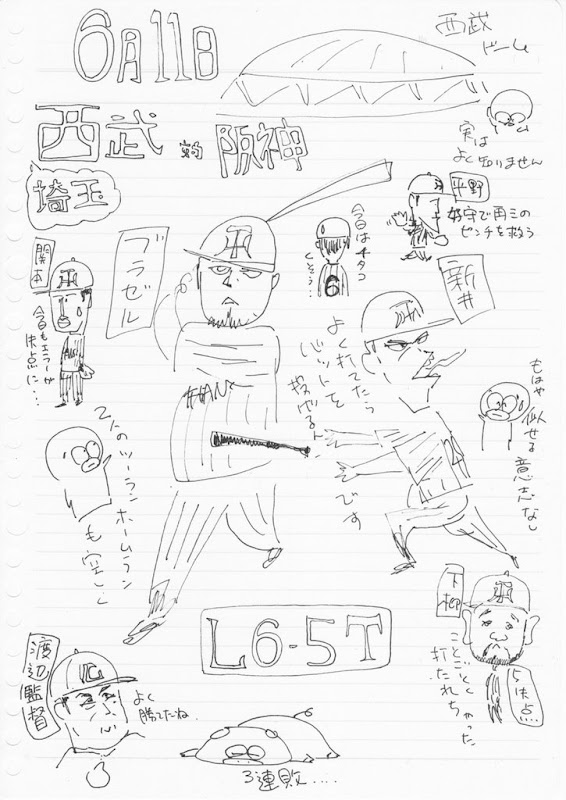 6月11日
西武
ドーム
西武 対 阪神
埼玉
実は
よく知りません
平野
好守で再三の
ピンチを救う
今日はオタコ
6
関本
今日もエラーが
失点に…
ブラゼル
新井
よく打てたら
バットを
投げるん
です
もはや似せる
意志なし
2人のツーランホームラン
も空しく
L6-5T
下柳
ことごとく
打たれちゃった
5失点
渡辺監督
よく
勝てたね
3連敗....